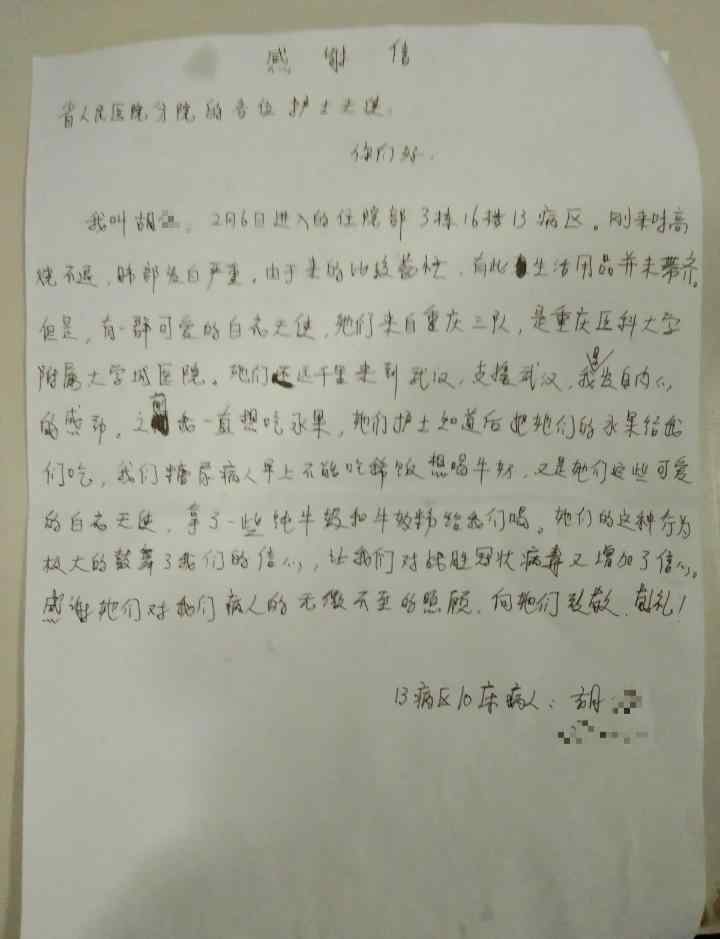 感谢信
省人民医院分院的各位护士天使.
你们好.
我叫胡 。2月6日进入的住院部3栋16楼13病区。刚来时高
烧不退,肺部发白严重,由于来的比较着急,有些生活用品并未带齐.
但是,有一群可爱的白衣天使,她们来自重庆三队,是重庆医科大学
附属大学城医院。她们远千里来到武汉,支援武汉,我是发自内心
的感动。之前我一直想吃水果,她们护士知道后把她们的水果给我
们吃,我们糖尿病人早上不能吃稀饭想喝牛奶,又是她们这些可爱
的白衣天使,拿了一些纯牛奶和牛奶粉给我们喝。她们的这种行为
极大的鼓舞了我们的信心,让我们对战胜冠状病毒又增加了信心。
感谢她们对我们病人的无微不至的照顾,向她们致敬、敬礼!
13病区10床病人:胡